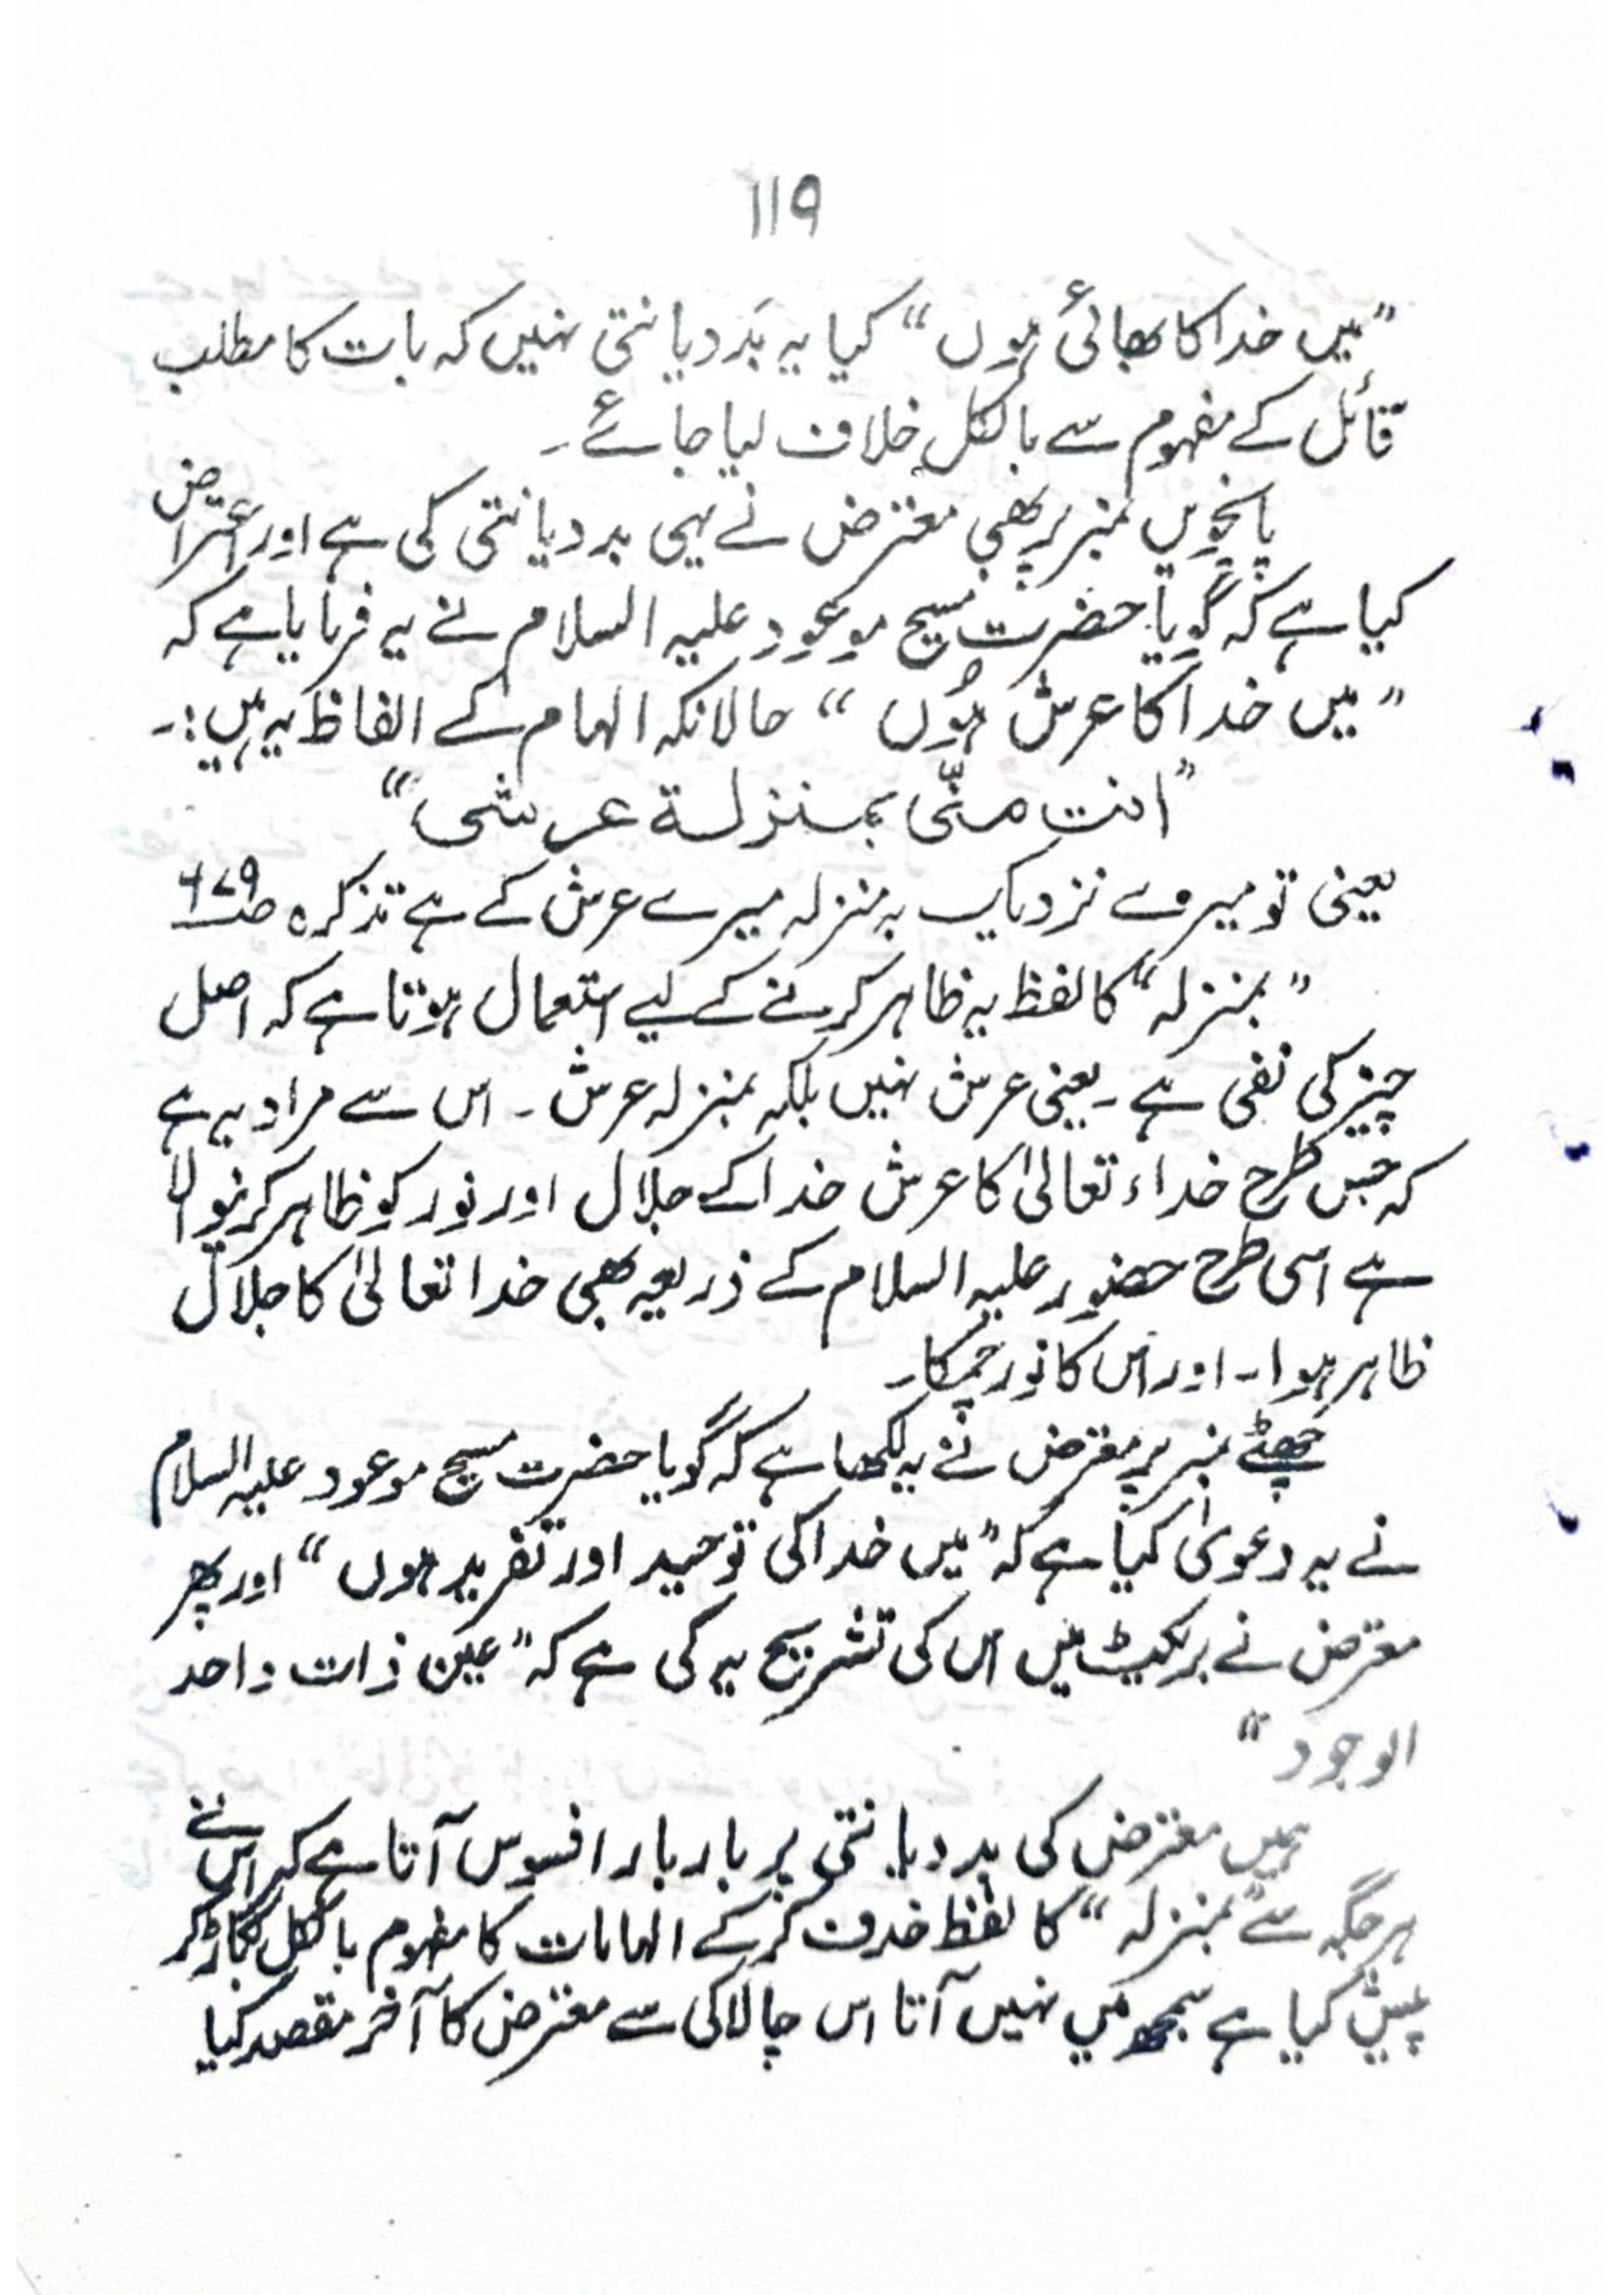 ۱۱۹
”میں خدا کا بھائی ہوں“ کیا یہ بَددیانتی نہیں کہ بات کا مطلب
قائل کے مفہوم سے بالکل خلاف لیا جائے۔
پانچویں نمبر پر بھی معترض نے یہی بددیانتی کی ہے اور اعتراض
کیا ہے کہ گویا حضرت مسیح موعود علیہ السلام نے یہ فرمایا ہے کہ
”میں خدا کا عرش ہُوں“ حالانکہ الہام کے الفاظ یہ ہیں:۔
”انت منّی بمنزلة عرشی“
یعنی تو میرے نزدیک بہ منزلہ میرے عرش کے ہے تذکرہ صـ۶۷۹
”بمنزلہ“ کا لفظ یہ ظاہر کرنے کے لیے استعمال ہوتا ہے کہ اصل
چیز کی نفی ہے۔ یعنی عرش نہیں بلکہ بمنزلہ عرش۔ اس سے مراد یہ ہے
کہ جس طرح خداء تعالیٰ کا عرش خدا کے جلال اور نور کو ظاہر کرنیوالا
ہے اسی طرح حضور علیہ السلام کے ذریعہ بھی خدا تعالیٰ کا جلال
ظاہر ہوا۔ اور اس کا نور چمکا۔
چھٹے نمبر پر معترض نے یہ لکھا ہے کہ گویا حضرت مسیح موعود علیہ السلام
نے یہ دعویٰ کیا ہے کہ ”میں خدا کی توحید اور تفرید ہوں“ اور پھر
معترض نے بریکیٹ میں اس کی تشریح یہ کی ہے کہ ”عین ذات واحد
الوجود“
ہمیں معترض کی بددیانتی پر بار بار افسوس آتا ہے کہ اس نے
ہر جگہ سے ”بمنزلہ“ کا لفظ حذف کر کے الہامات کا مفہوم بالکل بگاڑ کر
پیش کیا ہے سمجھ میں نہیں آتا اس چالاکی سے معترض کا آخر مقصد کیا